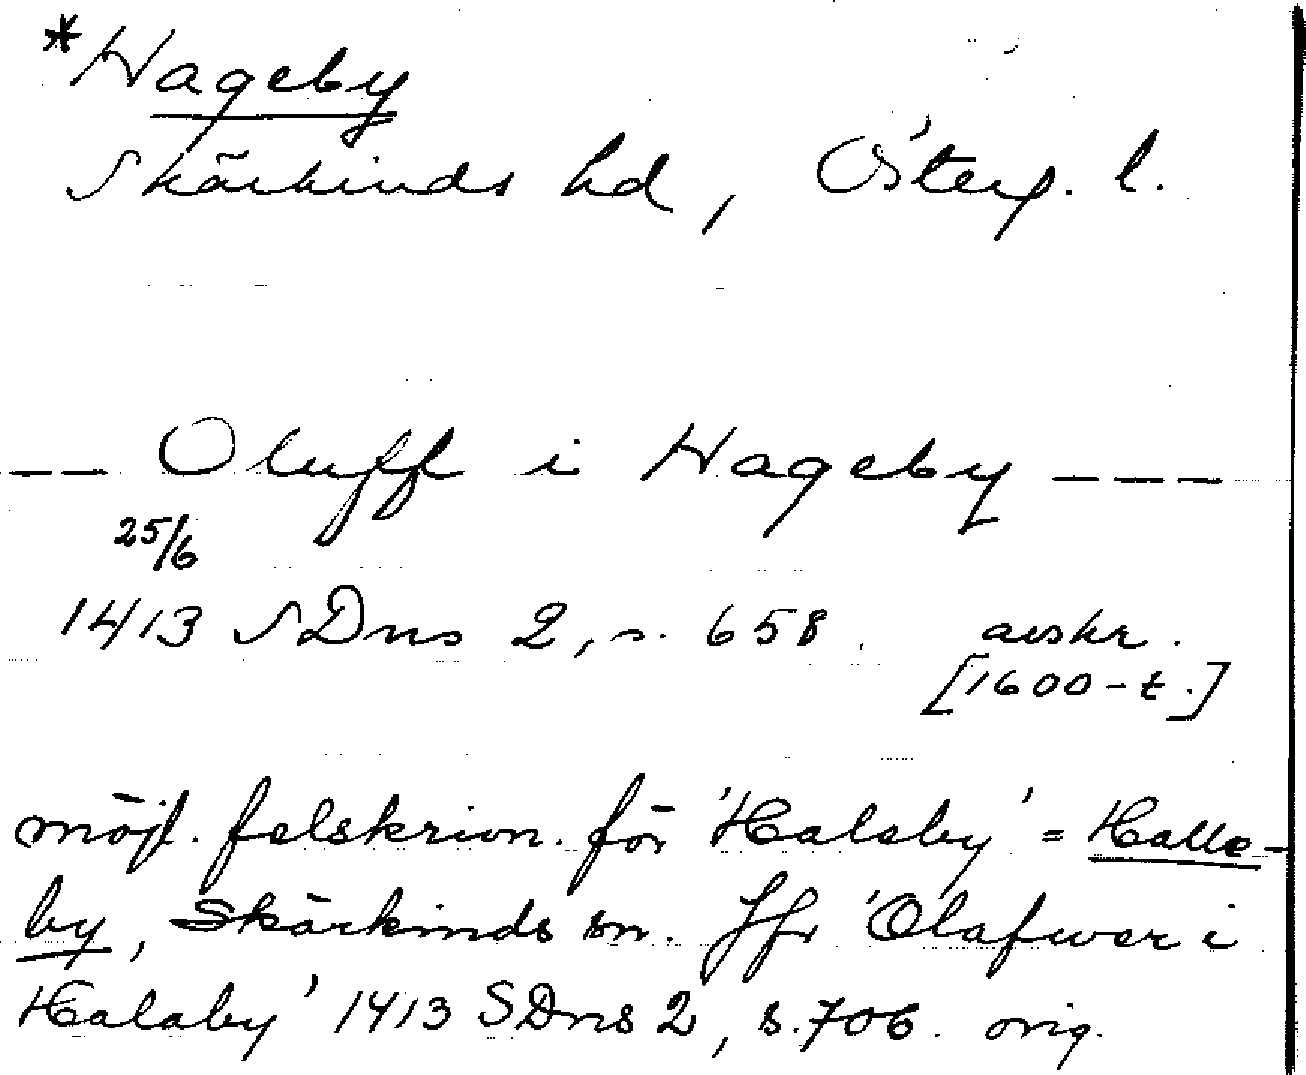 *Hageby
Skärkinds hd, Österg. l.
--- Oluff i Hageby ----
25/6
1413 SDns 2, s. 658. avskr.
[1600-t.]
möjl. felskrivn. för 'Halaby' = Halle-
by, Skärkinds sn. Jfr 'Olafwer i
Halaby' 1413 SDns 2, s. 706. orig.